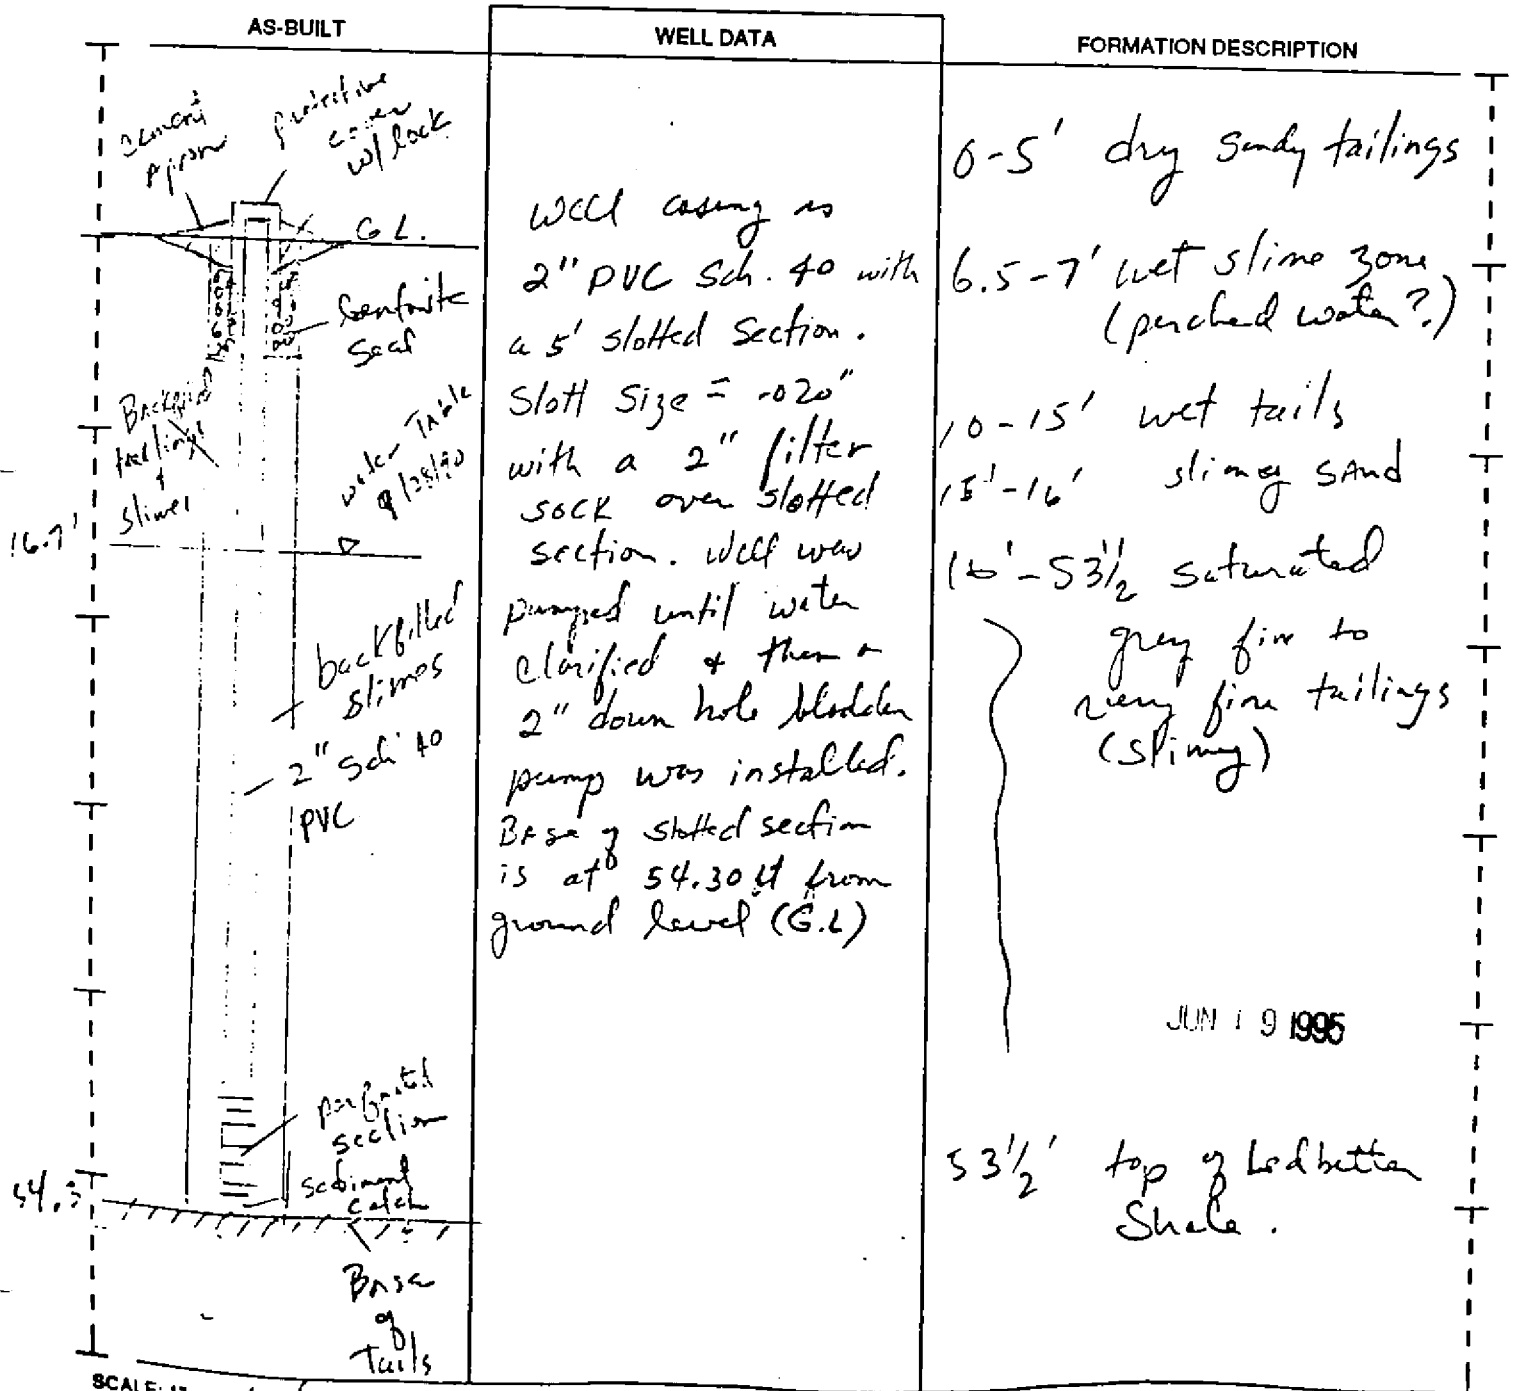 AS-BUILT
cement
apron
protective
cover
w/ lock
G L.
bentonite
seal
Backfilled
tailings
+
slimes
water Table
9/25/90
16.7'
backfilled
slimes
2" Sch 40
PVC
perforated
section
sediment
catch
54.3
Base
of
Tails
SCALE: 1"
WELL DATA
Well casing is
2" PVC Sch. 40 with
a 5' slotted section.
Slott Size = .020"
with a 2" filter
sock over slotted
section. Well was
pumped until water
clarified & then a
2" down hole bladder
pump was installed.
Base of slotted section
is at 54.30 ft from
ground level (G.L)
FORMATION DESCRIPTION
0-5' dry sandy tailings
6.5-7' wet slime zone
(perched water?)
10-15' wet tails
15'-16' slimey sand
16'-53 1/2 saturated
grey fine to
very fine tailings
(slimey)
JUN 19 1995
53 1/2' top of Ledbetter
Shale.